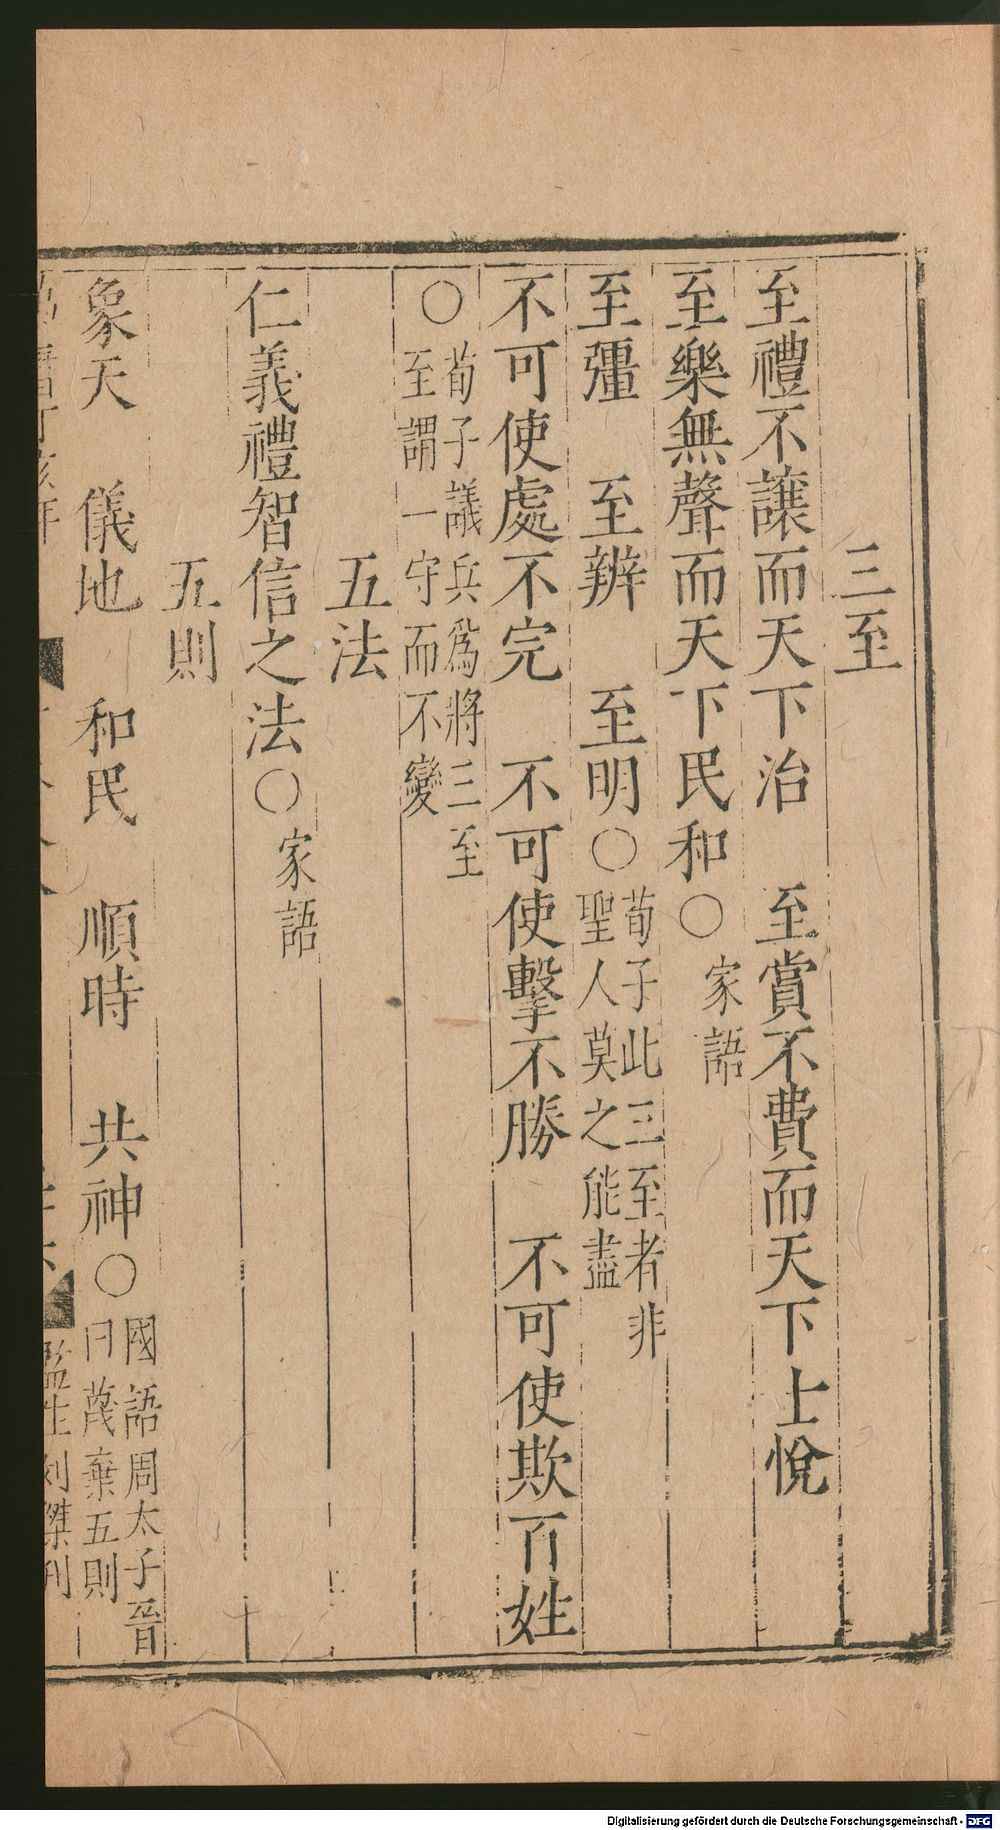 三至
至禮不讓而天下治　至賞不費而天下上悅
至樂無聲而天下民和〇家語
至彊　至辨　至明〇荀子此三至者非
聖人莫之能盡
不可使處不完　不可使擊不勝　不可使欺百姓
〇荀子議兵爲將三至
至謂一守而不變
五法
仁義禮智信之法〇家語
五則
象天　儀地　和民　順時　共神〇國語周太子晉
曰蔑棄五則
監生刘傑刊
Digitalisierung gefördert durch die Deutsche Forschungsgemeinschaft - DFG